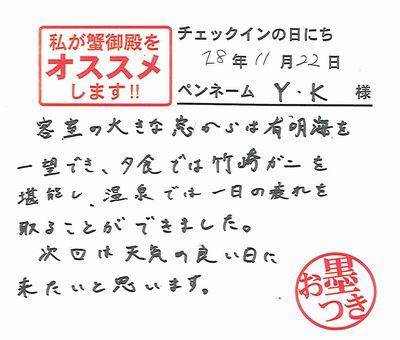 私が蟹御殿を
オススメ
します!!
チェックインの日にち
28年11月22日
ペンネーム Y・K 様
客室の大きな窓からは有明海を
一望でき、夕食では竹崎ガニを
堪能し、温泉では一日の疲れを
取ることができました。
次回は天気の良い日に
来たいと思います。
お墨つき